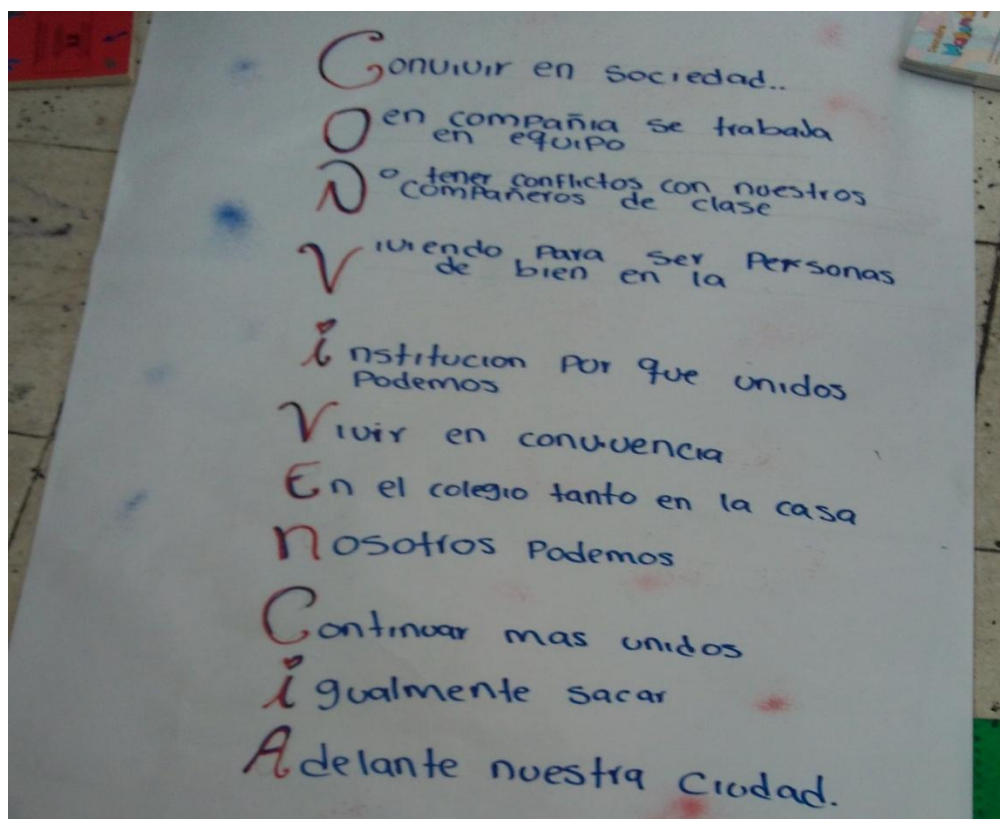 Convivir en sociedad..
O en compañia se trabaja
en equipo
No tener conflictos con nuestros
compañeros de clase
Viviendo para ser personas
de bien en la
institucion por que unidos
podemos
Vivir en convivencia
En el colegio tanto en la casa
nosotros podemos
Continuar mas unidos
igualmente sacar
Adelante nuestra ciudad.